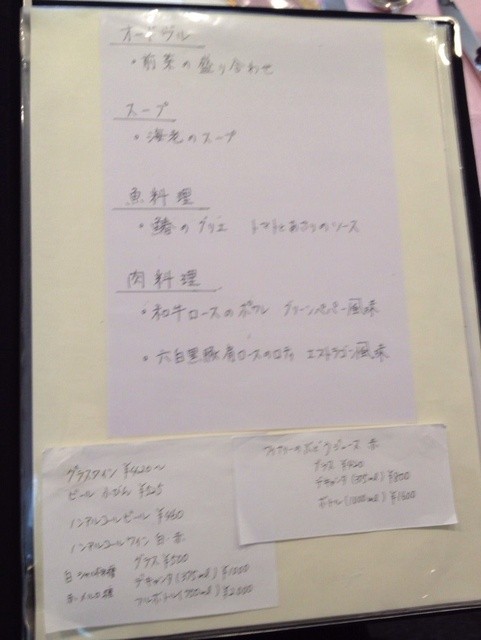 オードブル
・前菜の盛り合わせ
スープ
・海老のスープ
魚料理
・鰆のグリエ トマトとあさりのソース
肉料理
・和牛ロースのポワレ グリーンペッパー風味
・六白黒豚肩ロースのロティ エストラゴン風味
グラスワイン ¥420〜
ビール 小びん ¥525
ノンアルコールビール ¥480
ノンアルコールワイン 白・赤
グラス ¥500
白 シャルドネ種 デキャンタ(375ml) ¥1000
赤 メルロ種 フルボトル(700ml) ¥2,000
ジュース 赤
グラス ¥420
デキャンタ(375ml) ¥800
ボトル(1000ml) ¥1600